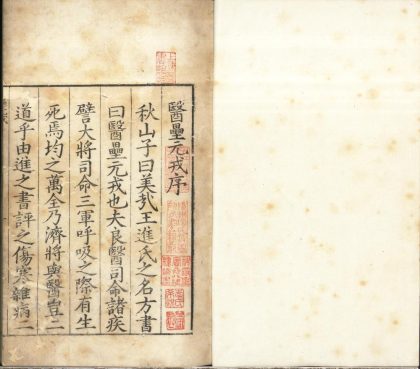 醫壘元戎序
秋山子曰美㢤王進氏之名方書
曰醫壘元戎也夫良醫司命諸疾
譬大將司命三軍呼吸之際有生
死焉均之萬全乃濟將與醫豈二
道乎由進之書評之傷寒雜病二